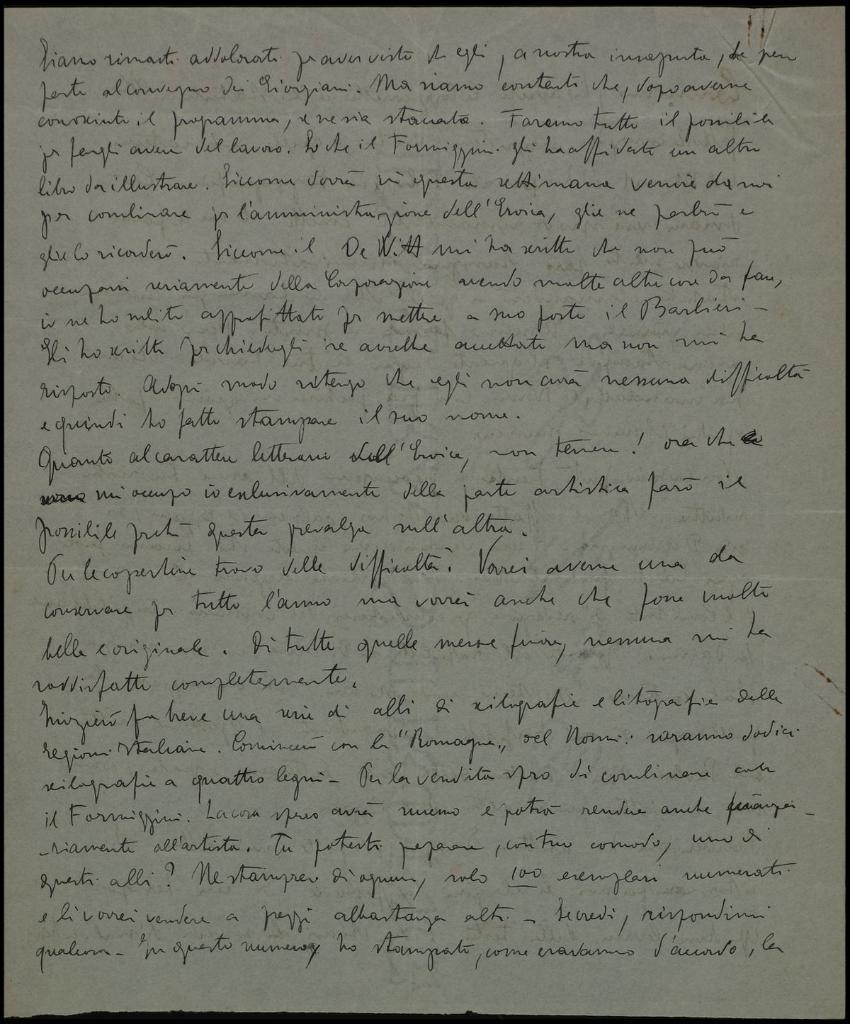 Siamo rimasti addolorati per aver visto ch'egli, a nostra insaputa,
parte al convegno dei Giorgiani. Ma siamo contenti che, dopo averne
conosciuto il programma, se ne sia staccato. Faremo tutto il possibile
per fargli avere del lavoro. So che il Formiggini gli ha affidato un altro
libro da illustrare. Siccome dovrà in questa settimana venire da noi
per combinare per l'amministrazione dell'Eroica, glie ne parlerò e
glie lo ricorderò. Siccome il De Witt mi ha scritto che non può
occuparsi seriamente della Corporazione avendo molte altre cose da fare,
io ne ho subito approfittato per mettere a suo posto il Barbieri –
Gli ho scritto per chiedergli se avrebbe accettato ma non mi ha
risposto. Ad ogni modo ritengo che egli non avrà nessuna difficoltà
e quindi ho fatto stampare il suo nome.
Quanto al carattere letterario dell'Eroica, non temere! ora che
mi occupo io esclusivamente della parte artistica farò il
possibile perchè questa prevalga sull'altra.
Per le copertine trovo delle difficoltà. Vorrei averne una da
conservare per tutto l'anno ma vorrei anche che fosse molto
bella e originale. Di tutte quelle messe fuori, nessuna mi ha
soddisfatto completamente.
Inizierò fra breve una serie di albi di xilografie e litografie delle
regioni italiane. Comincerò con la "Romagna„ del Nonni: saranno dodici
xilografie a quattro legni – Per la vendita spero di combinare con
il Formiggini. La cosa spero avrà successo e potrà rendere anche finanzia-
-riamente all'artista. Tu potresti preparare, con tuo comodo, uno di
questi albi? Ne stamperei di ognuno, solo 100 esemplari numerati
e li vorrei vendere a prezzi abbastanza alti – Se credi, rispondimi
qualcosa – In questo numero ho stampato, come eravamo d'accordo, la